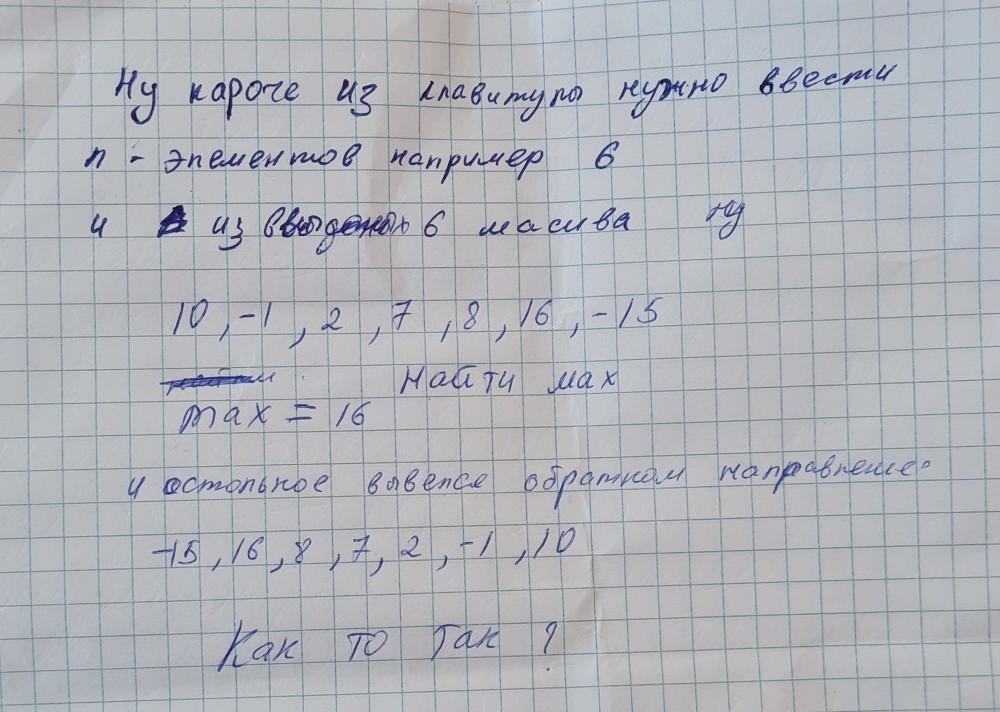 Ну кароче из клавитуры нужно ввести
n - элементов например 6
и из 6 масива ну
10, -1, 2, 7, 8, 16, -15
Найти мах
max = 16
и остольное вывелсе обратном направление
-15, 16, 8, 7, 2, -1, 10
Как то так ?